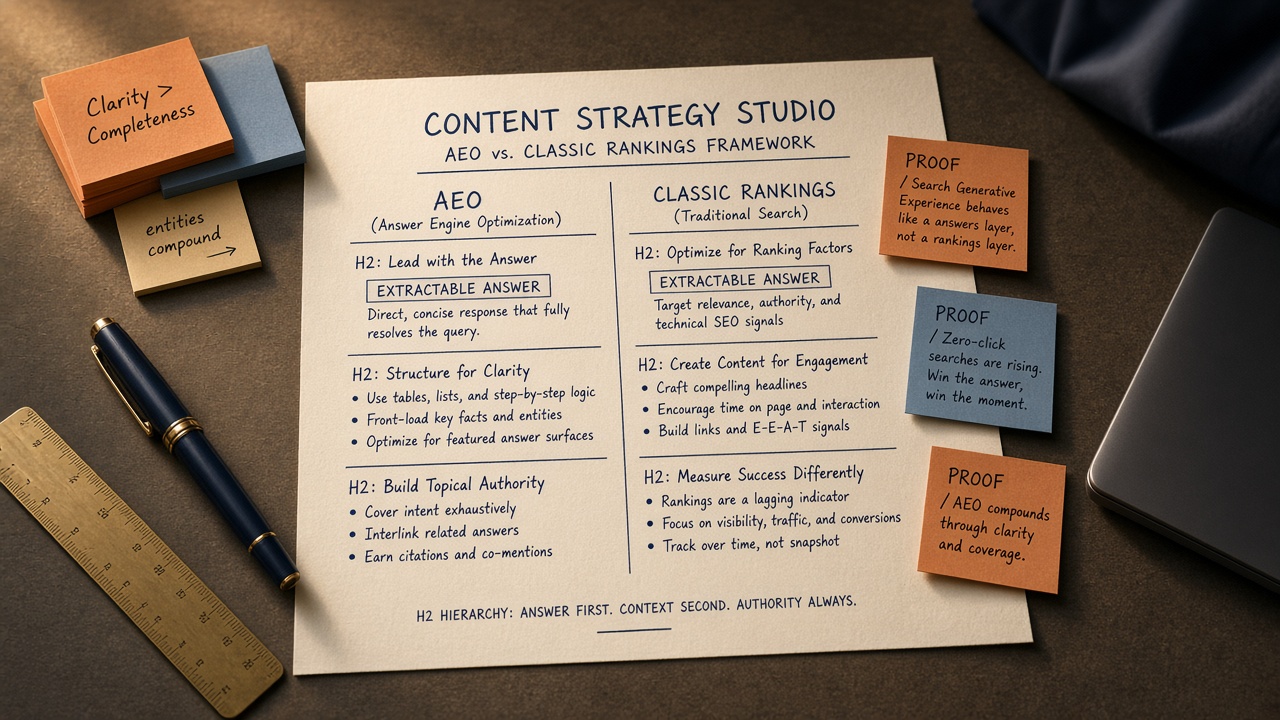 Clarity >
Completeness
entities
compound →
CONTENT STRATEGY STUDIO
AEO vs. CLASSIC RANKINGS FRAMEWORK
AEO
(Answer Engine Optimization)
H2: Lead with the Answer
EXTRACTABLE ANSWER
Direct, concise response that fully
resolves the query.
H2: Structure for Clarity
• Use tables, lists, and step-by-step logic
• Front-load key facts and entities
• Optimize for featured answer surfaces
H2: Build Topical Authority
• Cover intent exhaustively
• Interlink related answers
• Earn citations and co-mentions
CLASSIC RANKINGS
(Traditional Search)
H2: Optimize for Ranking Factors
EXTRACTABLE ANSWER
Target relevance, authority, and
technical SEO signals
H2: Create Content for Engagement
• Craft compelling headlines
• Encourage time on page and interaction
• Build links and E-E-A-T signals
H2: Measure Success Differently
• Rankings are a lagging indicator
• Focus on visibility, traffic, and conversions
• Track over time, not snapshot
H2 HIERARCHY: ANSWER FIRST. CONTEXT SECOND. AUTHORITY ALWAYS.
PROOF
/ Search Generative
Experience behaves
like a answers layer,
not a rankings layer.
PROOF
/ Zero-click
searches are rising.
Win the answer,
win the moment.
PROOF
/ AEO compounds
through clarity
and coverage.